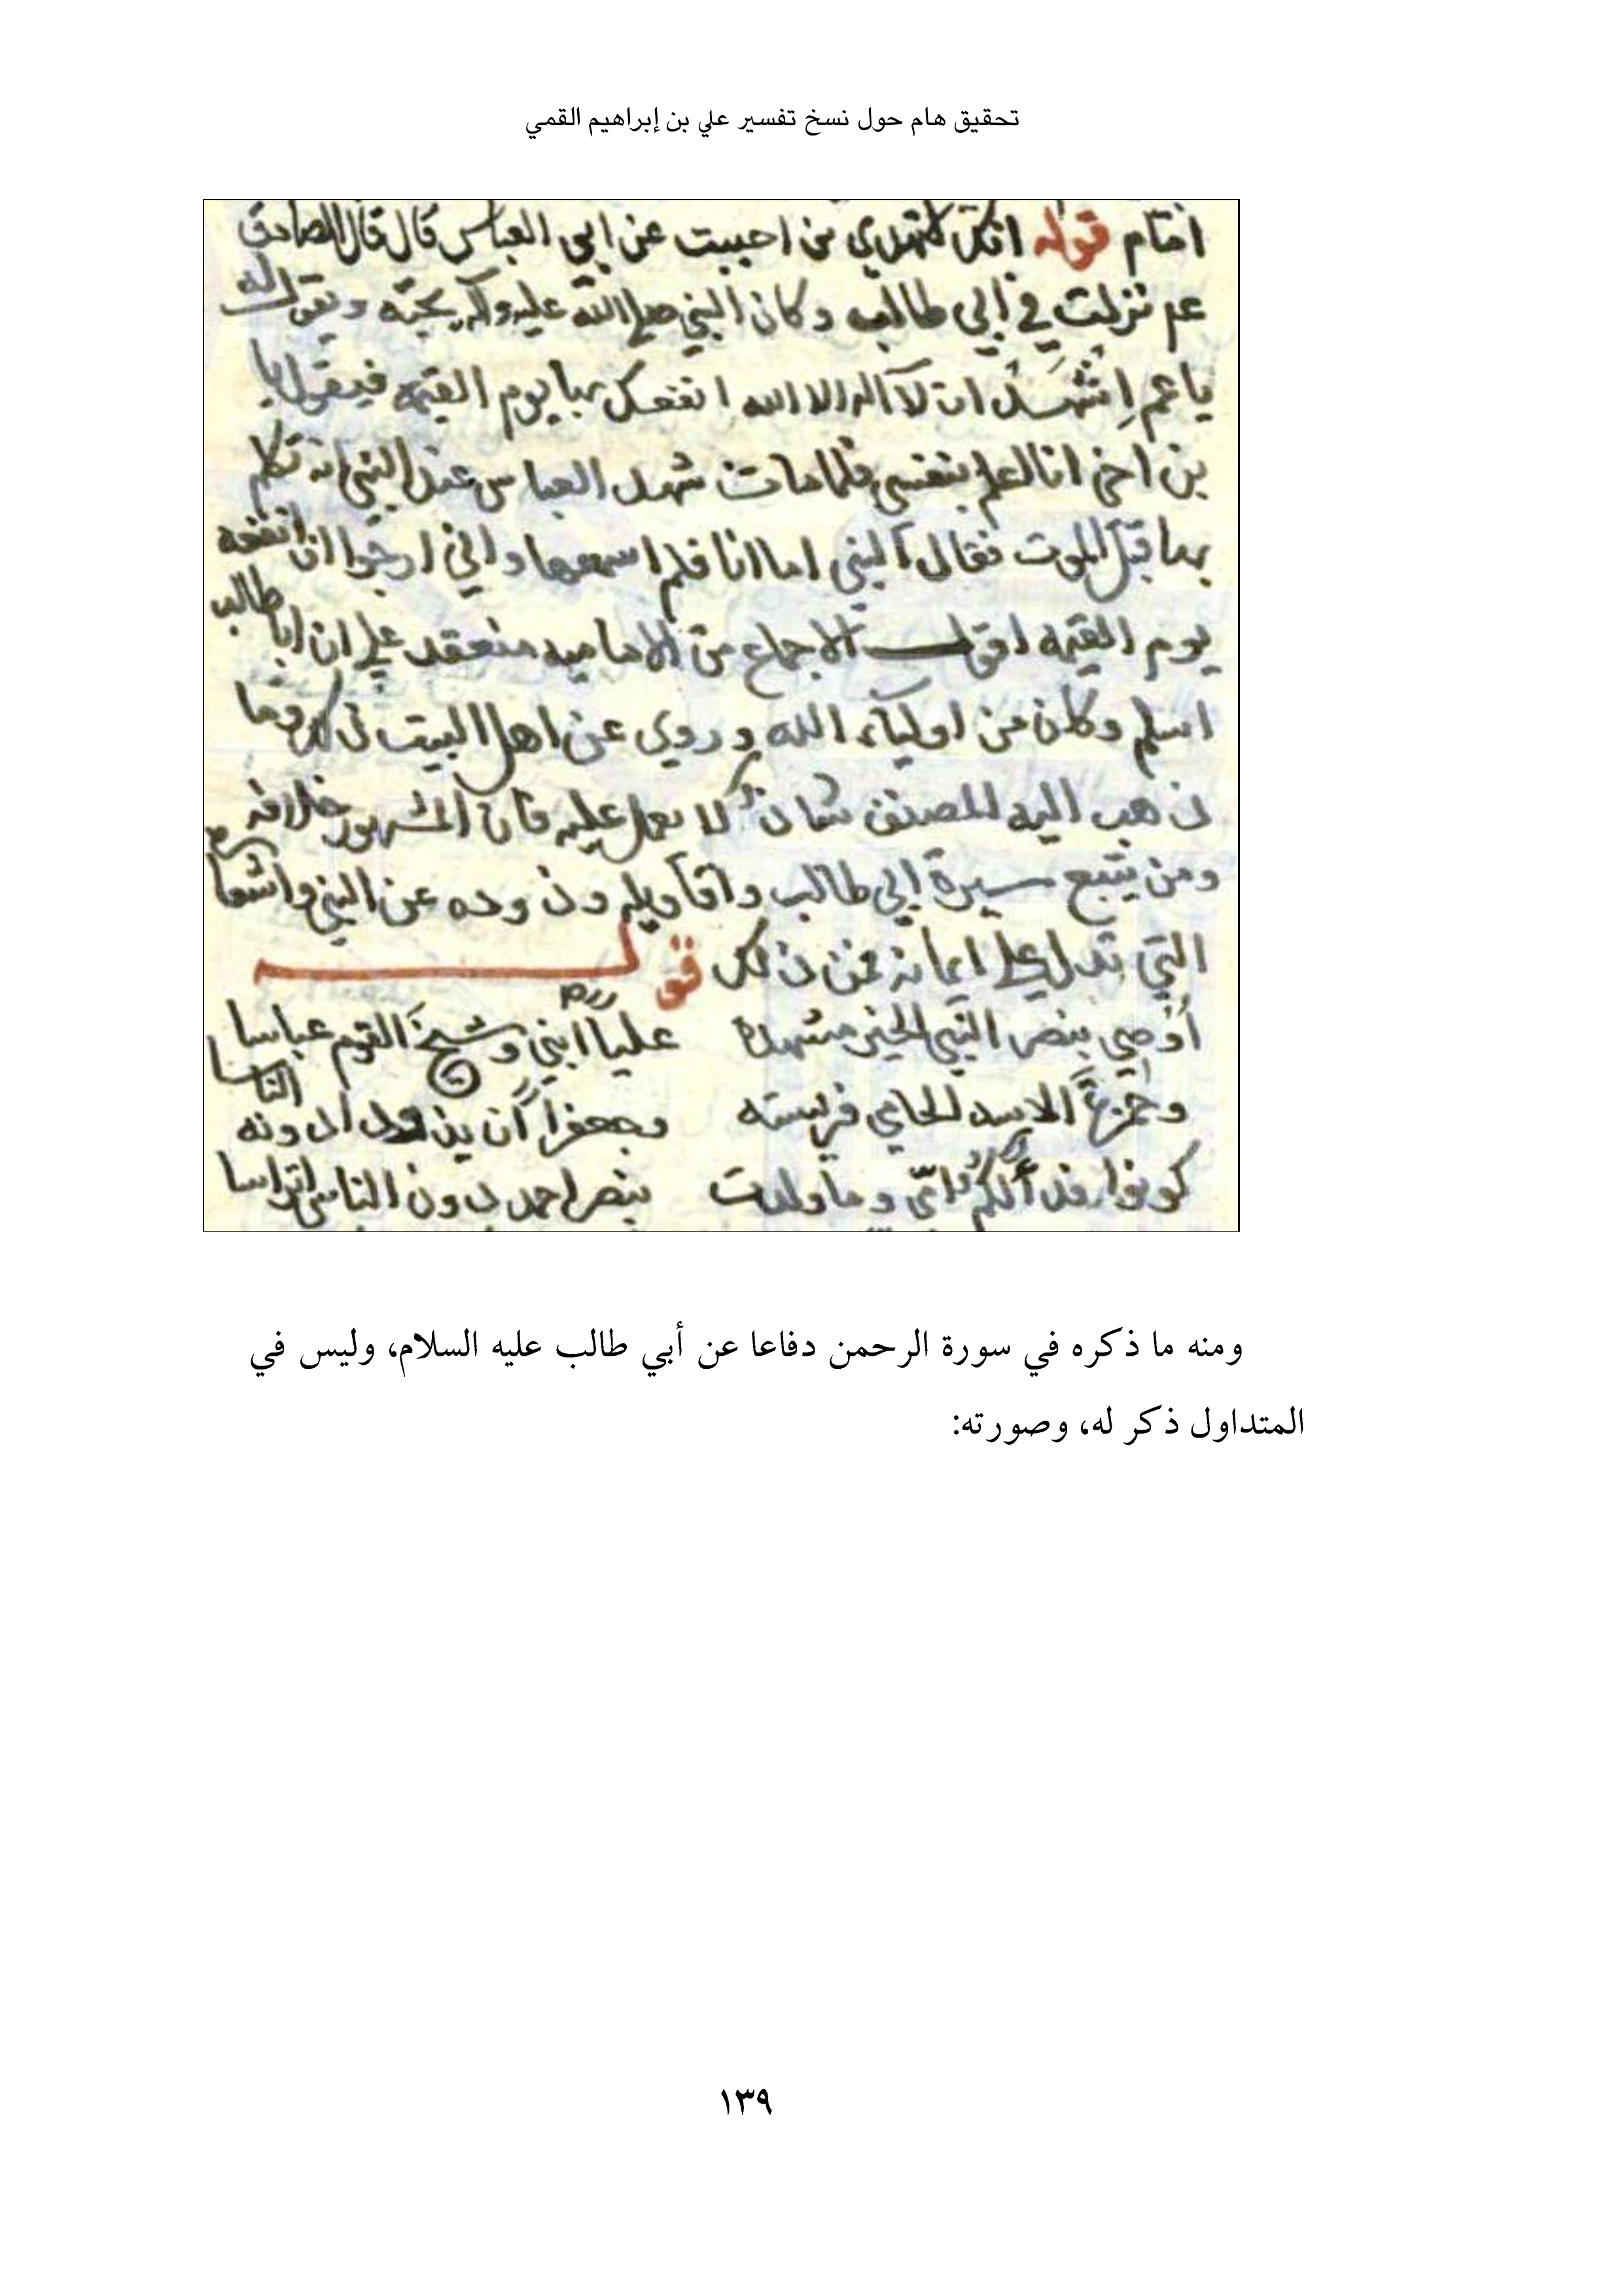 تحقيق هام حول نسخ تفسير علي بن إبراهيم القمي
قوله انك لا تهدي من احببت عن ابي العباس قال قال الصادق
عم نزلت في ابي طالب وكان النبي صلى الله عليه وآله يحبه ويقول له
يا عم اشهد ان لا اله الا الله انفعك بها يوم القيمه فيقول يا
بن اخي انا اعلم بنفسي فلما مات شهد العباس عند النبي انه تكلم
بها قبل الموت فقال النبي اما انا فلم اسمعها واني ارجوا ان انفعه
يوم القيمه اقول الاجماع من الاماميه منعقد على ان ابا طالب
اسلم وكان من اولياء الله وروي عن اهل البيت ذلك وما
ذهب اليه المصنف شاذ لا يعمل عليه فان المشهور خلافه
ومن يتبع سيرة ابي طالب واقاويله وذوده عن النبي واشعاره
التي تدل على ايمانه فمن ذلك قوله
أوصي بنصر النبي الخير مشهده عليا ابني وشيخ القوم عباسا
وحمزة الاسد الحامي فريسته وجعفرا أن يذودا دونه الناسا
كونوا فدا لكم امي وما ولدت بنصر احمد دون الناس اتراسا
ومنه ما ذكره في سورة الرحمن دفاعا عن أبي طالب عليه السلام، وليس في
المتداول ذكر له، وصورته:
١٣٩